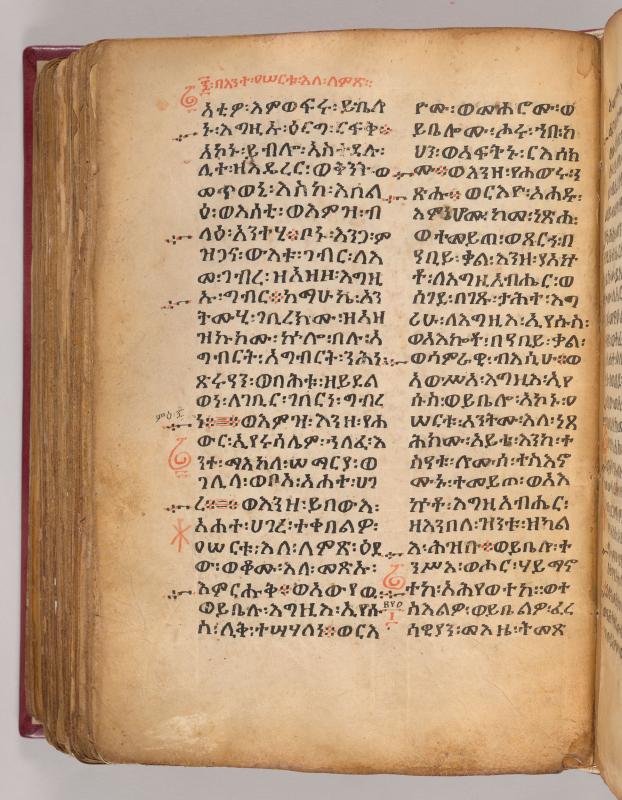 ፷፡በእንተ፡፲ሠርቱ፡እለ፡ለምጽ።
አቲዎ፡እምወፍሩ፡ይቤሎ
ኑ፡እግዚኡ፡ዕርግ፡ርፍቅ፨
አኮኑ፡ይብሎ፡አስተዴሉ፡
ሊተ፡ዘእዴረር፡ወቅንት፡ወ
መጥወኒ፡እስከ፡እበል
ዕ፡ወእሰቲ፡ወእምዝ፡ብ
ላዕ፡አንተሂ፨ቦኑ፡እንጋ፡ም
ዝጋና፡ውእቱ፡ገብር፡ለእ
መ፡ገብረ፡ዘአዘዞ፡እግዚ
ኡ፡ግብር፨ከማሁኬ፡አን
ትሙሂ፡ገቢረክሙ፡ዘአዘ
ዝኩክሙ፡ኵሎ፡በሉ፡አ
ግብርት፡ለግብርት፡ንሕነ፡
ጽሩዓን፡ወባሕቱ፡ዘይደል
ወነ፡ለገቢር፡ገበርነ፡ግብረ
ነ፨ወእምዝ፡እንዘ፡የሐ
ውር፡ኢየሩሳሌም፡ኀለፈ፡እ
ንተ፡ማእከለ፡ሠማርያ፡ወ
ገሊላ፡ወቦአ፡አሐተ፡ሀገ
ረ፨ወእንዘ፡ይበውእ፡
አሐተ፡ሀገረ፡ተቀበልዎ፡
፲ሠርቱ፡እለ፡ለምጽ፡ዕደ
ው፡ወቆሙ፡እለ፡መጽኡ፡
እምርሑቅ፨ወአውየዉ፡
ወይቤሉ፡እግዚእ፡ኢየሱ
ስ፡ሊቅ፡ተሣሃለነ፨ወርእ
ዮሙ፡ወመሐሮሙ፡ወ
ይቤሎሙ፡ሑሩ፡ኀበ፡ካ
ህን፡ወአፍትኑ፡ርእሰክ
ሙ፨ወእንዘ፡የሐውሩ፡ነ
ጽሑ፨ወርእዮ፡አሐዱ፡
እምህሙ፡ከመ፡ነጽሐ፡
ወተመይጠ፡ወጸርኀ፡በ
ዓቢይ፡ቃል፡እንዘ፡ያአኵ
ቶ፡ለእግዚአብሔር፡ወ
ሰገደ፡በገጹ፡ታሕተ፡እግ
ሪሁ፡ለእግዚእ፡ኢየሱስ፡
ወአእኰቶ፡በዓቢይ፡ቃል፡
ወሳምራዊ፡ብእሲሁ፨ወ
አውሥአ፡እግዚእ፡ኢየ
ሱስ፡ወይቤሎ፡አኮኑ፡፲
ሠርቱ፡አንትሙ፡እለ፡ነጻ
ሕክሙ፡አይቴ፡እንከ፡ተ
ስዓቱ፡ሶሙሰ፡ተስእኖ
ሙኑ፡ተመይጦ፡ወአእ
ኵቶ፡እግዚአብሔር፡
ዘእንበለ፡ዝንቱ፡ዘካል
እ፡ሕዝቡ፨ወይቤሉ፡ተ
ንሥእ፡ወሖር፡ሃይማኖ
ትከ፡አሕየወተከ፨ወተ
ስእልዎ፡ወይቤልዎ፡ፈረ
ሳዊያን፡መአዜ፡ትመጽ